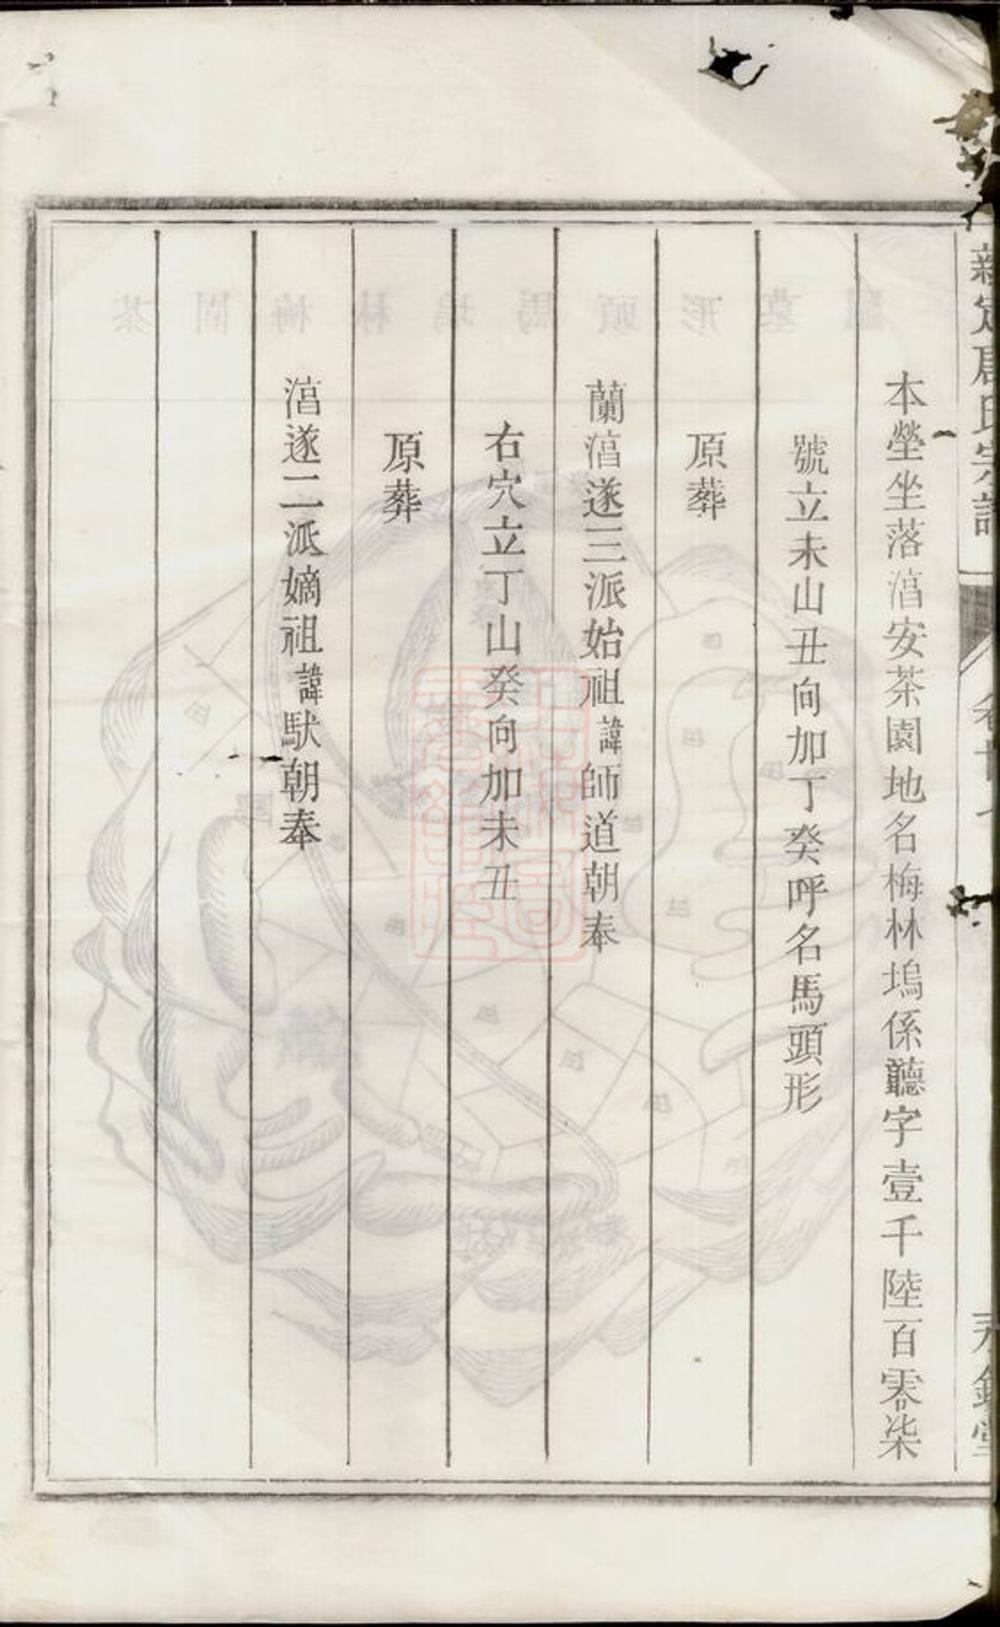 本塋坐落湻安茶園地名梅林塢係聽字壹千陸百零柒
號立未山丑向加丁癸呼名馬頭形
原葬
蘭湻遂三派始祖諱師道朝奉
右穴立丁山癸向加未丑
原葬
湻遂二派嫡祖諱馱朝奉